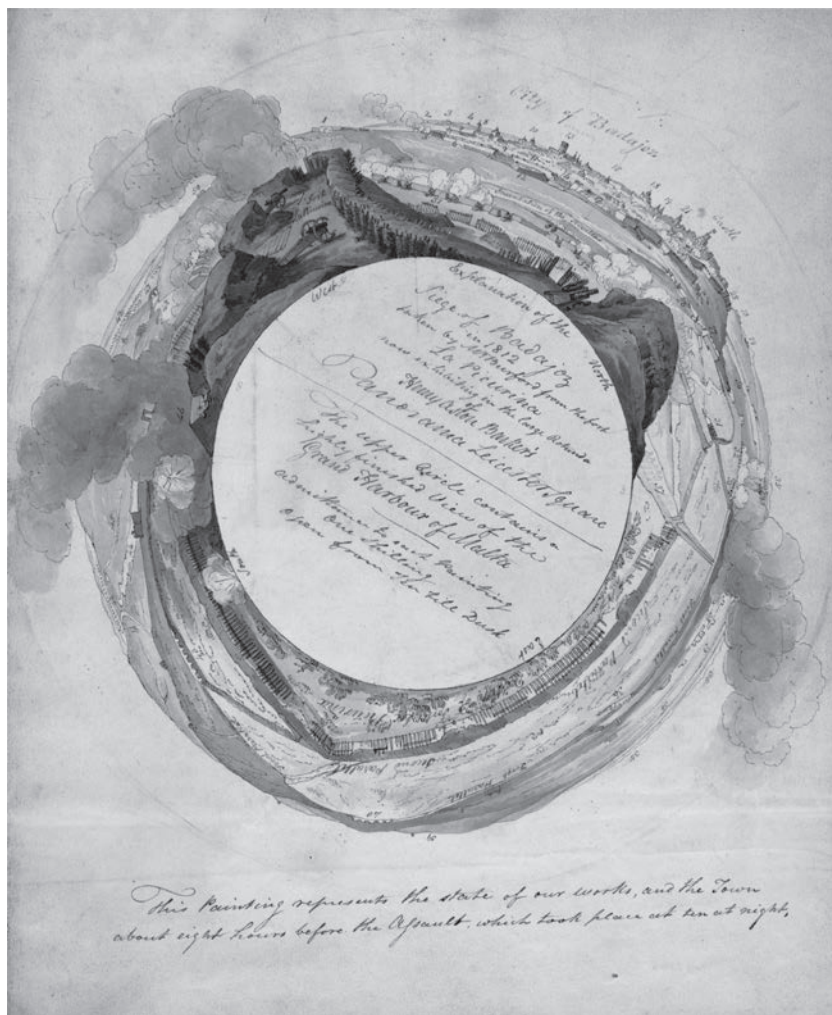 City of Badajos
Castle
West
North
South
East
Explanation of the
Siege of Badajoz
in 1812
taken by Mr Burford from the fort
La Picurina
now exhibiting in the large Rotunda
of
Henry Aston Barker's
Panorama Leicester Square
The upper Circle contains a
highly finished View of the
Grand Harbour of Malta
admittance to each Painting
One Shilling
Open from Ten till Dusk
Second Parallel
First Parallel
This Painting represents the state of our works, and the Town
about eight hours before the Assault, which took place at ten at night.